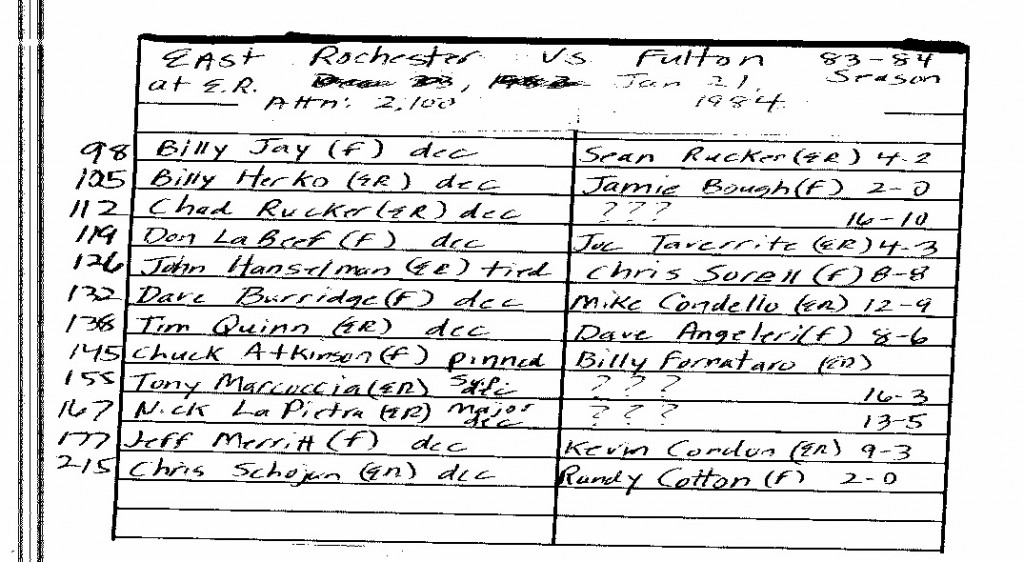 EAst Rochester VS Fulton 83-84
at E.R. Jan 21, Season
Attn: 2,100 1984
98 Billy Jay (F) dec Sean Rucker (ER) 4-2
105 Billy Herko (ER) dec Jamie Bough (F) 2-0
112 Chad Rucker (ER) dec ??? 16-10
119 Don LaBeef (F) dec Joe Taverrite (ER) 4-3
126 John Hanselman (ER) tied Chris Sorell (F) 8-8
132 Dave Burridge (F) dec Mike Condello (ER) 12-9
138 Tim Quinn (ER) dec Dave Angeleri (F) 8-6
145 Chuck Atkinson (F) pinned Billy Fornataro (ER)
155 Tony Marcoccia (ER) ??? 16-3
167 Nick La Pietra (ER) major dec ??? 13-5
177 Jeff Merritt (F) dec Kevin Condon (ER) 9-3
215 Chris Schojan (ER) dec Randy Cotton (F) 2-0